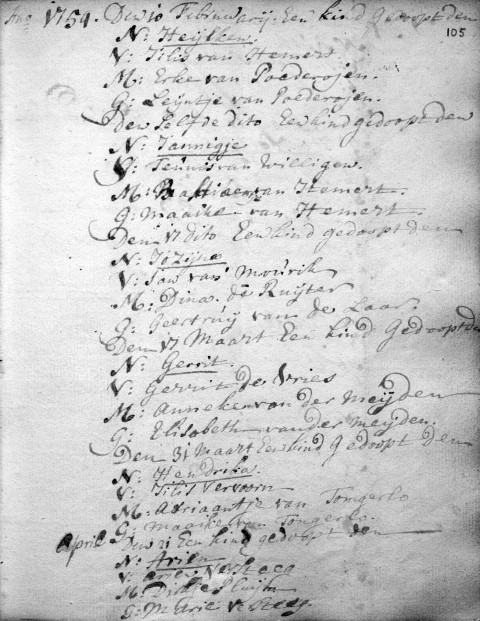 Ano 1754. Den 10 Februwarij. Een kind gedoopt den
105
N: Heijltien
V: Tilis van Hemert
M: Erke van Poederojen.
G: Leijntje van Poederojen.
Den Selfde dito Een kind gedoopt den
N: Jannigje
V: Teunis van Willigen.
M: van Hemert.
G: Maaike van Hemert.
Den 17 dito Een kind gedoopt den
N: Jozijna
V: Jan van Mourik
M: Dina de Ruijter
G: Geertruij van de Laar.
Den 17 Maart Een kind Gedoopt den
N: Gerrit.
V: Gerrit de Vries
M: Anneke van der Meijden
G: Elisabeth van der Meijden.
Den 31 Maart Een kind Gedoopt Den
N: Hendrika.
V: Tilis Vervoorn
M: Adriaantje van Tongerlo
G: Maaike van Tongerlo.
April Den 21 Een kind gedoopt den
N: Arien
V: Arien Versteeg
M: Dirkje
G: Marie Versteeg.